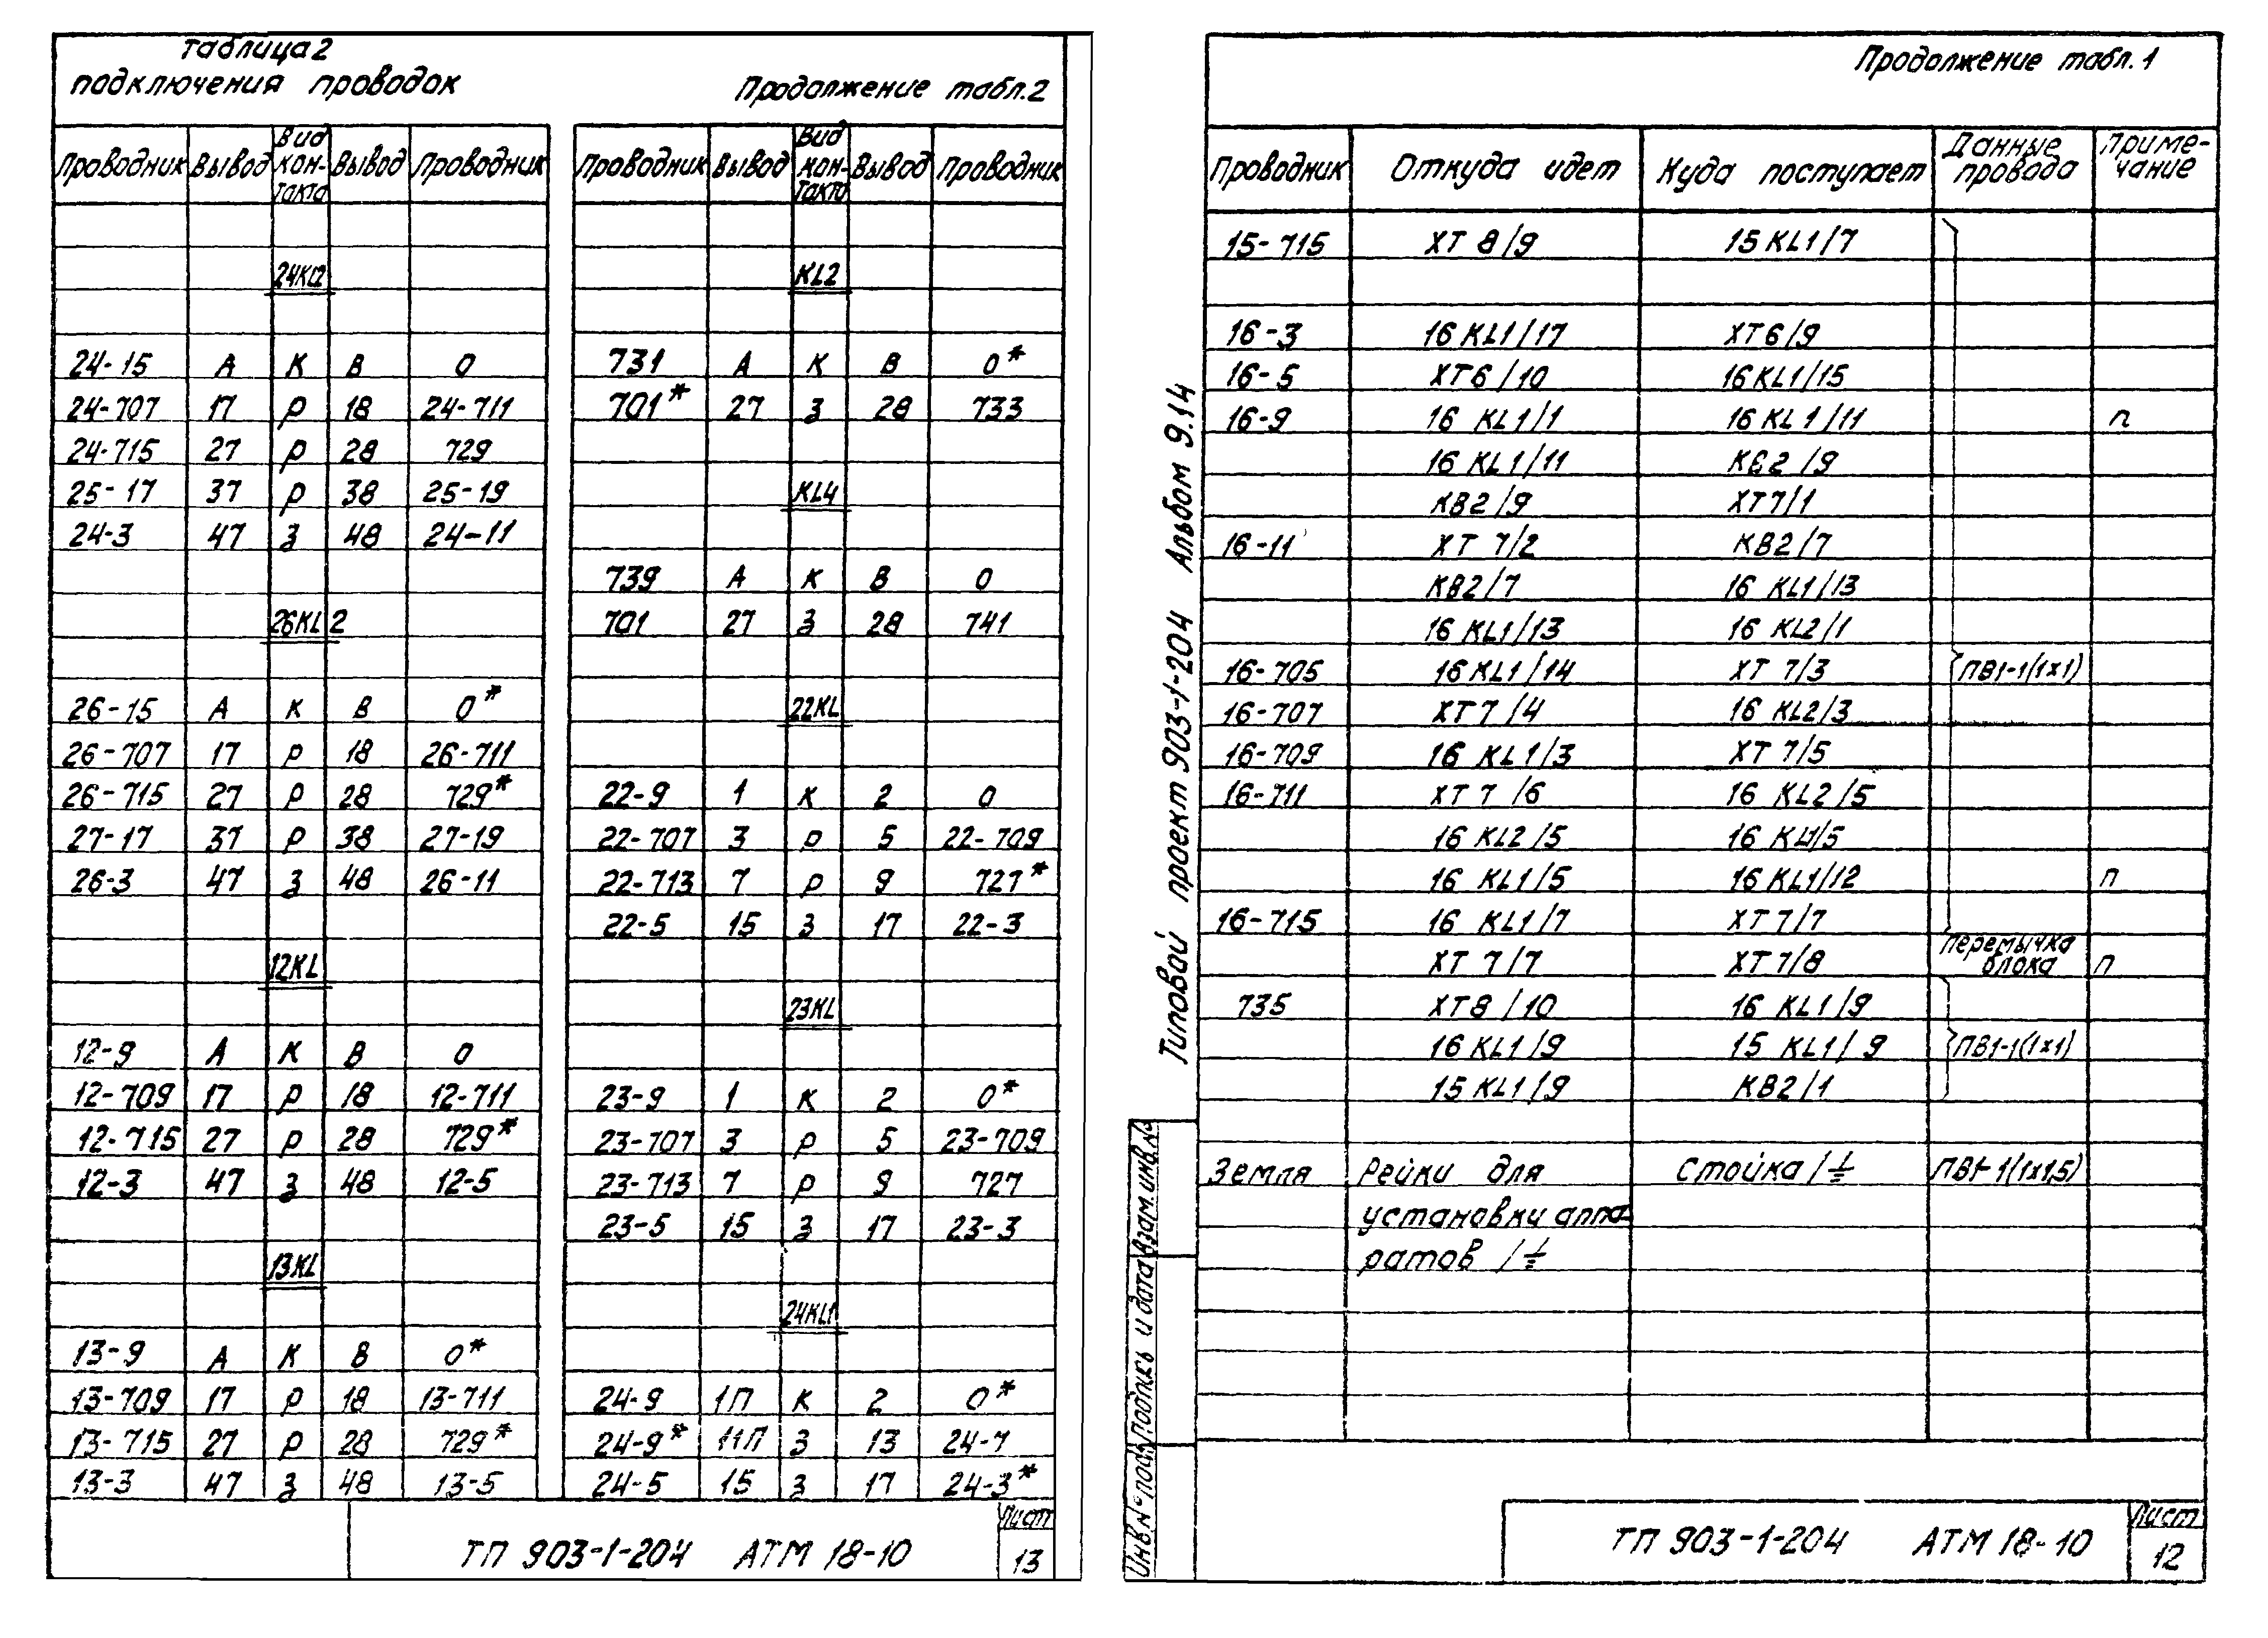 Таблица 2
подключения проводок
Проводник Вывод Вид контакта Вывод Проводник
24KL2
24-15 А К В 0
24-707 17 р 18 24-711
24-715 27 р 28 729
25-17 37 р 38 25-19
24-3 47 з 48 24-11
26KL2
26-15 А К В 0*
26-707 17 р 18 26-711
26-715 27 р 28 729*
27-17 37 р 38 27-19
26-3 47 з 48 26-11
12KL
12-9 А К В 0
12-709 17 р 18 12-711
12-715 27 р 28 729*
12-3 47 з 48 12-5
13KL
13-9 А К В 0*
13-709 17 р 18 13-711
13-715 27 р 28 729*
13-3 47 з 48 13-5
Продолжение табл.2
Проводник Вывод Вид контакта Вывод Проводник
KL2
731 А К В 0*
701* 27 з 28 733
KL4
739 А К В 0
701 27 з 28 741
22KL
22-9 1 К 2 0
22-707 3 р 5 22-709
22-713 7 р 9 727*
22-5 15 з 17 22-3
23KL
23-9 1 К 2 0*
23-707 3 р 5 23-709
23-713 7 р 9 727
23-5 15 з 17 23-3
24KL1
24-9 1П К 2 0*
24-9* 11П з 13 24-7
24-5 15 з 17 24-3*
ТП 903-1-204 АТМ 18-10
Лист
13
Типовой проект 903-1-204 Альбом 9.14
Взам. инв.№
Подпись и дата
Инв.№ подл.
Продолжение табл. 1
Проводник Откуда идет Куда поступает Данные провода Примечание
15-715 XT 8/9 15 KL1/7
16-3 16 KL1/17 XT6/9
16-5 XT6/10 16KL1/15
16-9 16 KL1/1 16 KL1/11 п
16 KL1/11 КВ2/9
КВ2/9 XT7/1
16-11 XT 7/2 КВ2/7
КВ2/7 16 KL1/13
16 KL1/13 16 KL2/1
16-705 16 KL1/14 XT 7/3 ПВ1-1(1х1)
16-707 XT7/4 16 KL2/3
16-709 16 KL1/3 XT 7/5
16-711 XT 7/6 16 KL2/5
16 KL2/5 16 KL1/5
16 KL1/5 16 KL1/12 п
16-715 16 KL1/7 XT 7/7
XT 7/7 XT 7/8 перемычка блока п
735 XT8/10 16 KL1/9
16 KL1/9 15 KL1/9 ПВ1-1(1х1)
15 KL1/9 КВ2/1
Земля Рейки для Стойка/⏚ ПВ1-1(1х1,5)
установки аппа-
ратов /⏚
ТП 903-1-204 АТМ 18-10
Лист
12